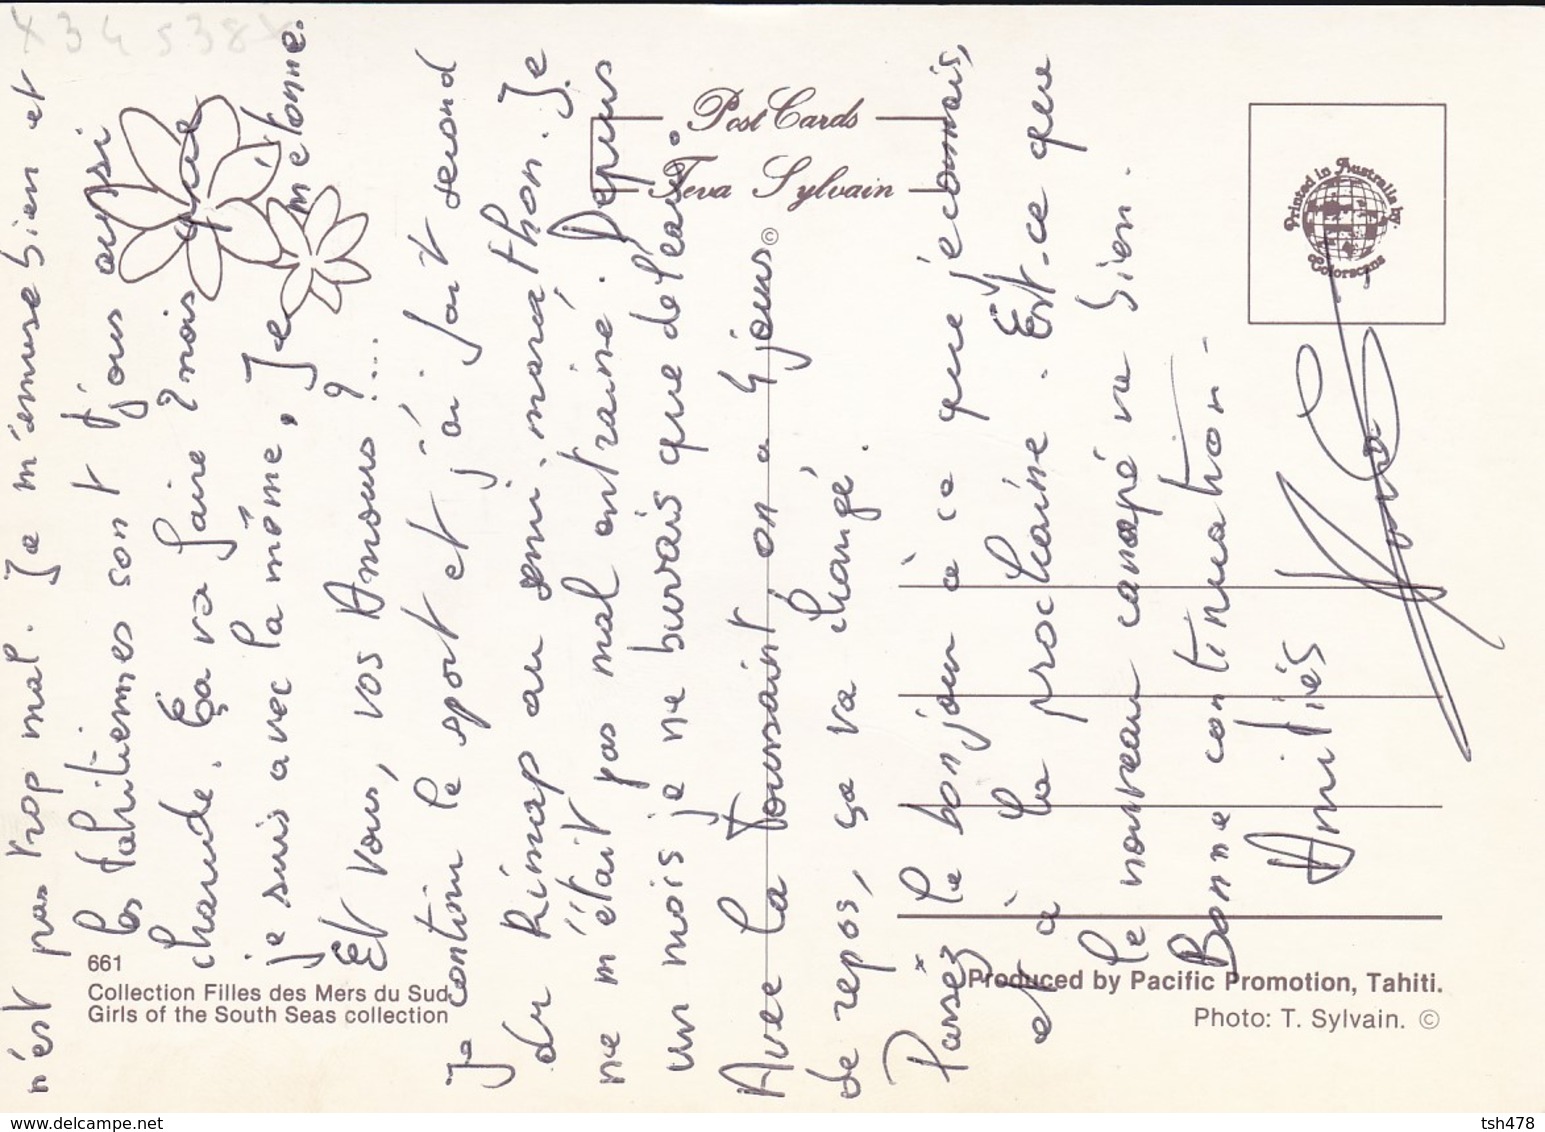 n'est pas trop mal. Je m'amuse bien et
les tahitiennes sont toujours aussi
chaude. Ça va faire 2 mois que
je suis avec la même, Je m'étonne.
Et vous, vos Amours ? ...
Je continu le sport et j'ai fait second
du Rimap au semi-marathon. Je
ne m'était pas mal entrainé. Depuis
un mois je ne buvais que de l'eau.
Avec la Toussaint on a 4 jours
de repos, ça va changé.
Passez le bonjour à ce que je connais,
et à la prochaine. Est-ce que
le nouveau canapé va bien.
Bonne continuation.
Amitiés
Post Cards
Teva Sylvain
©
Printed in Australia by:
Colorscans
661
Collection Filles des Mers du Sud
Girls of the South Seas collection
Produced by Pacific Promotion, Tahiti.
Photo: T. Sylvain. ©
www.delcampe.net
tsh478